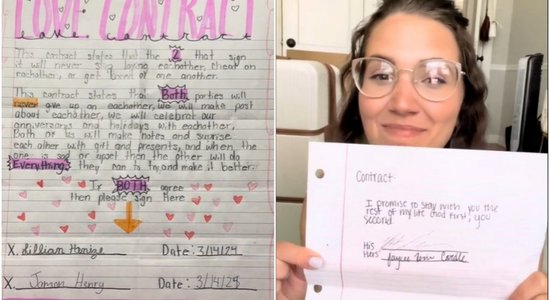 LOVE CONTRACT
Love Contract
This contract states that the 2 that sign
it will never stop loving eachother, cheat on
eachother, or get bored of one another.
This contract states that Both parties will
never give up on eachother, we will make post
about eachother, we will celebrate our
anniversarys and holidays with eachother,
Both of us will make notes and surprise
each other with gift and presents, and when the
one is sad or upset then the other will do
Everything they can to try and make it better.
If BOTH agree
then please sign Here
X. Lillian Date: 3/14/24
X. Jamon Henry 3/14/24
Contract:
I promise to stay with you the
rest of my life (God first, you
second
His
Hers Jaycee